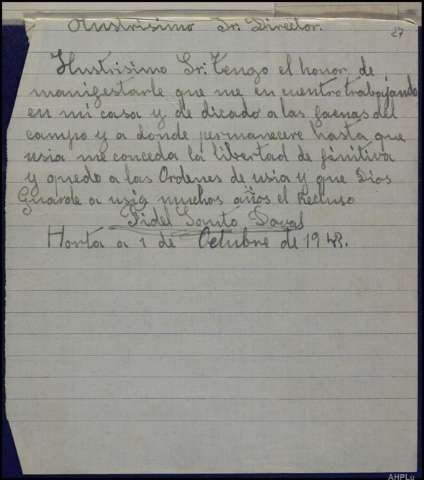 Ilustrisimo Sr. Director.
27
Ilustrisimo Sr: Tengo el honor de
manigestarle que me en cuentro trabajando
en mi casa y de dicado a las faenas del
campo y a donde permanecere hasta que
usia me conceda la libertad de finitiva
y quedo a las Ordenes de usia y que Dios
Guarde a usia muchos años el Recluso
Fidel
Horta a 1 de Octubre de 1943.
AHPLu